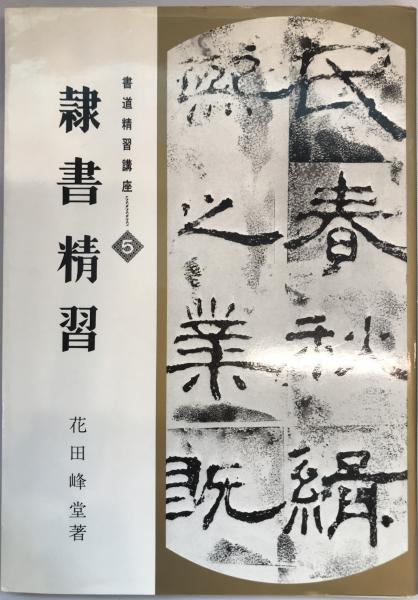 書道精習講座
5
隷書精習
花田峰堂著
民春秋緝
熙之業既